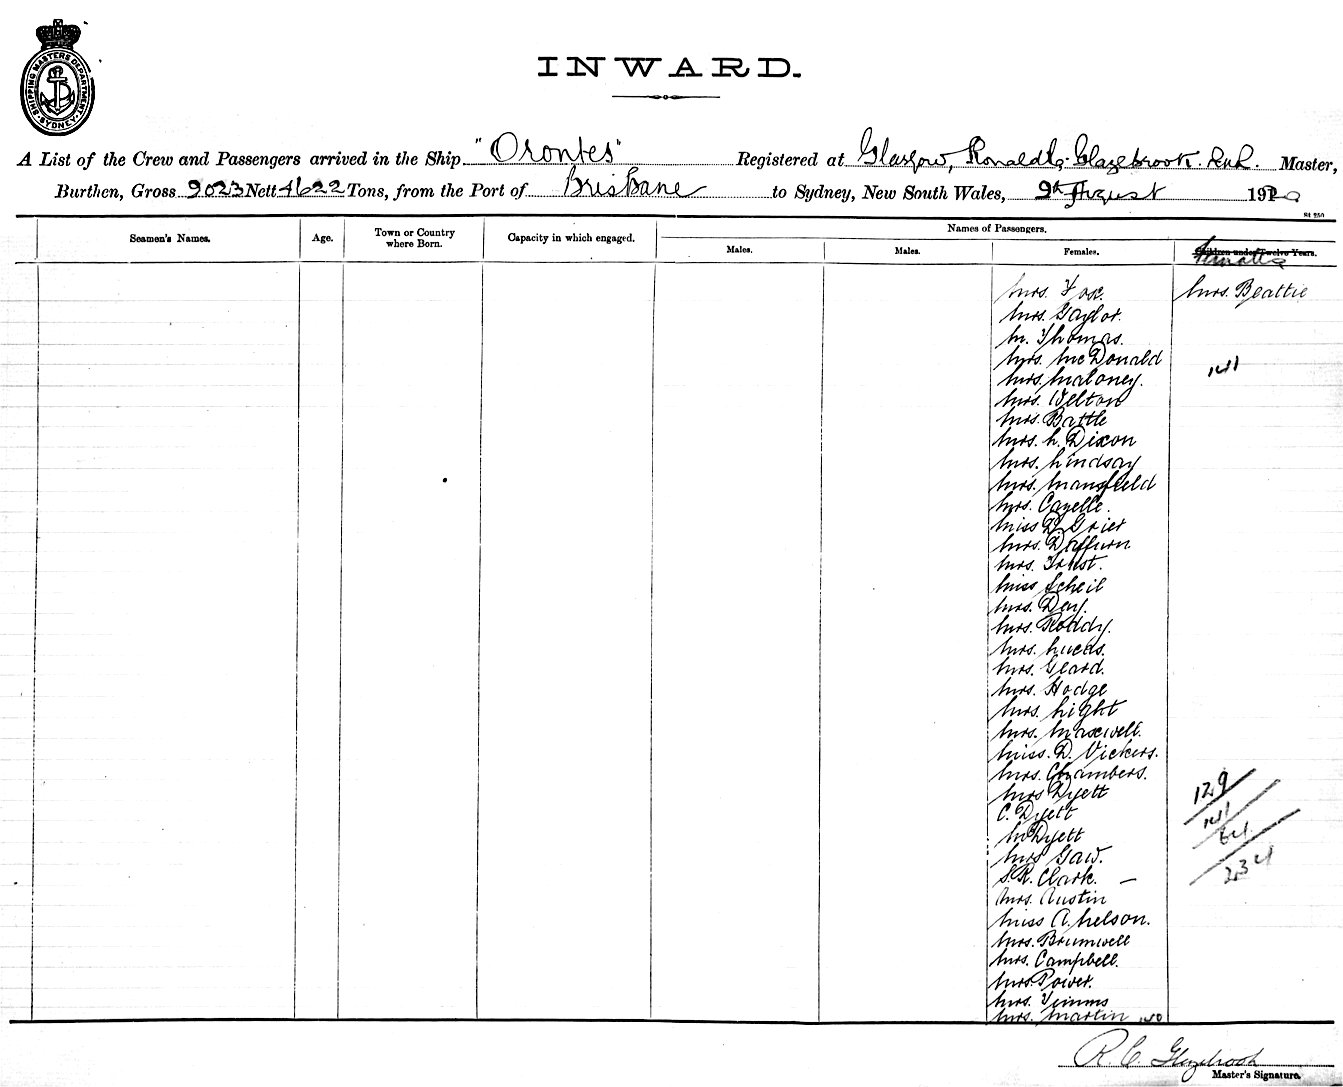 SHIPPING MASTERS DEPARTMENT
SYDNEY
INWARD.
A List of the Crew and Passengers arrived in the Ship "Orontes" Registered at Glasgow, Ronald C. Glazebrook. R.N.R. Master,
Burthen, Gross 9023 Nett 4622 Tons, from the Port of Brisbane to Sydney, New South Wales, 9th August 1920
Seamen's Names.
Age.
Town or Country
where Born.
Capacity in which engaged.
Names of Passengers.
Males.
Males.
Females.
Children under Twelve Years.
Females
Mrs. Fox.
Mrs. Gaylor.
M. Thomas.
Mrs. McDonald
Mrs. Maloney.
Mrs. Welton
Mrs. Battle
Mrs. L. Dixon
Mrs. Lindsay
Mrs. Mansfield
Mrs. Cayelle.
Miss D. Grier
Mrs. Daffurn
Mrs. Trust.
Miss Scheil
Mrs. Day.
Mrs. Roddy.
Mrs. Lucas.
Mrs. Geard.
Mrs. Hodge
Mrs. Light
Mrs. Maxwell.
Miss. D. Vickers.
Mrs. Chambers.
Mrs Dyett
C. Dyett
M Dyett
Mrs Gaw.
S.R. Clark. —
Mrs. Austin
Miss A. Nelson.
Mrs. Brumwell
Mrs. Campbell.
Mrs. Power.
Mrs. Timms
Mrs. Martin 140
Mrs. Beattie
141
129
141
64
234
R. C. Glazebrook
Master's Signature.